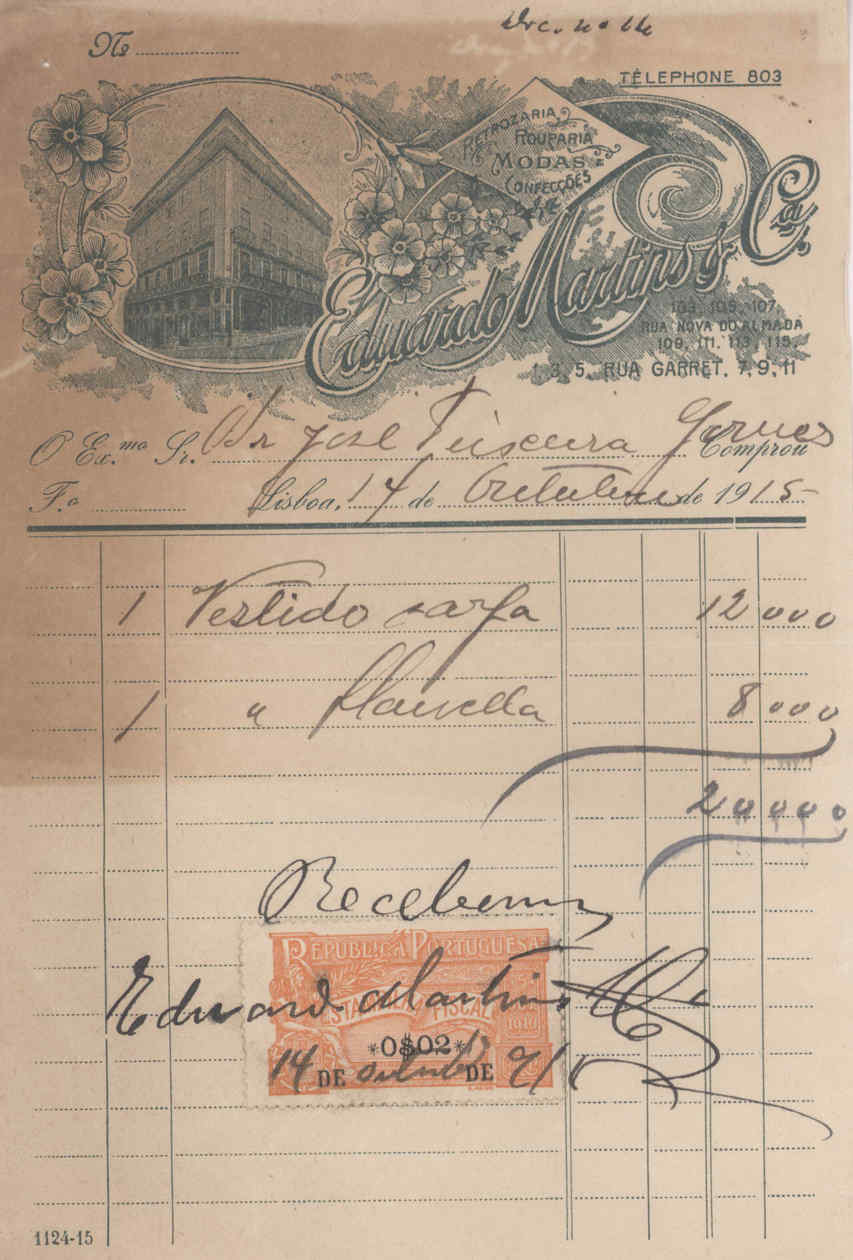 Nº
Doc. nº 
TÉLEPHONE 803
RETROZARIA
ROUPARIA
MODAS
CONFECÇÕES
Eduardo Martins & Cª.
103, 105, 107,
RUA NOVA DO ALMADA
109, 111, 113, 115,
1, 3, 5, RUA GARRET, 7, 9, 11
O Ex.mo Sr. Dr José Teixeira Gomes Comprou
F.º Lisboa, 14 de Outubro de 1915
1 Vestido sarja 12000
1 " flanella 8000
20000
Recebemos
REPUBLICA PORTUGUESA
Eduardo Martins & Cª
ESTAMPILHA FISCAL
1910
*0$02*
14 DE outubro DE 915
1124-15